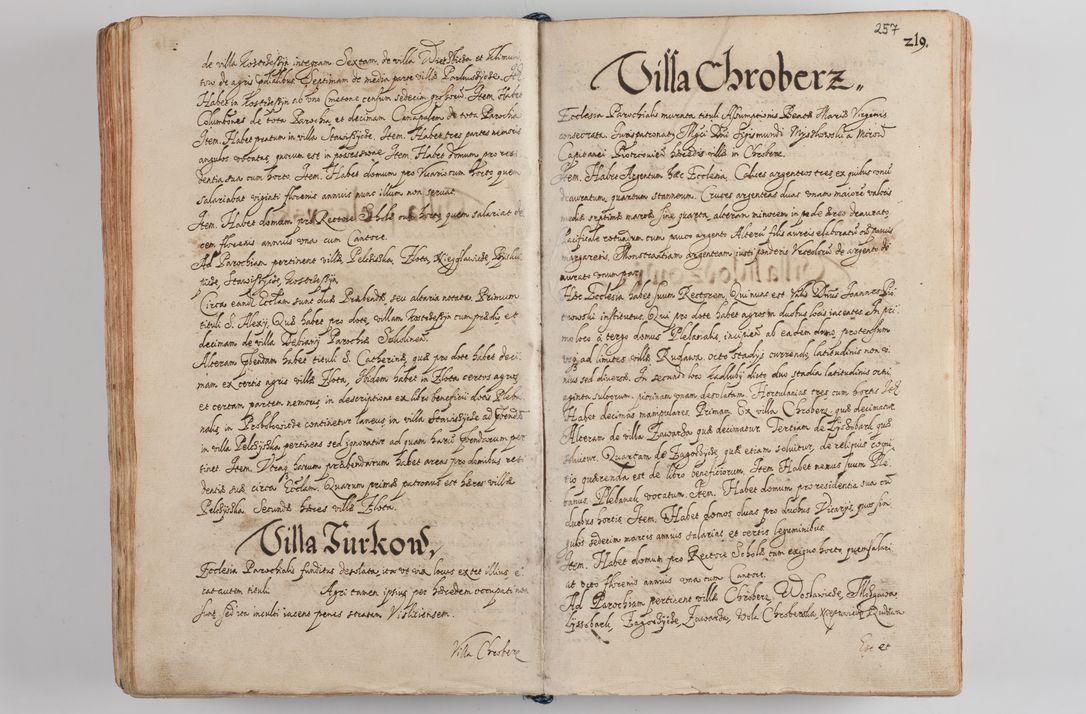 de villa Kostrzessyn integram. Sextam, de villa
tow de agris Septimam de media parte villæ
Habet in Kostrzessyn ab vno Cmetone centum sedecim grossorum. Item. Habet
Columbones de tota Parochia, et decimam Canapalem de tota Parochia
Item. Habet pratum in villa Item. Habet tres partes nemoris
angulos vocatas, quarum est in possessione. Item. Habet domum pro resi
dentia sua cum horto. Item. Habet domum pro Vicario cum horto quem
salariabat viginti florenis annuis nunc illum non servat.
Item. Habet domum pro Rectore Scholæ cum horto quem salariat de
cem florenis annuis vna cum Cantore.
Ad Parochiam pertinent villæ Pelczyska, Zlota,
Kostrzessyn
Circa eandem Ecclesiam sunt duæ Præbendæ, seu altaria notata. Primum
tituli S. Alexij, Quæ habet pro dote, villam Kostrzessyn cum prædio, et
decimam de villa Parochiæ
Alteram præbendam habet tituli S. Catherinæ, quæ pro dote habet deci
mam ex certis agris villæ Zlota, Ibidem habet in Zlota certos agros,
et certam partem nemoris, in descriptione ex libro beneficiorum Pleba
nalis, in continetur laneus in villa ad præbendam
in villa Pelczyska pertinens sed ignoratur ad quam harum præbendarum per
tinet. Item. Vtraque harum præbendarum habet areas pro domibus resi
dentiæ suæ circa Ecclesiam. Quarum primæ patronus est hæres villæ
Pelczyska. Secundæ hæres villæ Zlota.
Villa Jurkow,
Ecclesia Parochialis funditus desolata, ita vt vix locus extet illius
cat autem tituli Agri tamen ipsius per hæredem occupati non
sunt, sed ita inculti iacent penes stratam Visliciensem.
Villa Chroberz
257
219.
Villa Chroberz„
Ecclesia Parochialis murata tituli Assumptionis Beatæ Mariæ Virginis
consecrata, Iurispatronatus Mgci Dni Sigismundi Myszkowski a Mirow
Capitanei Piotrcouien hæredis villæ in Chroberz.
Item. Habet Argentum hæc Ecclesia, Calices argenteos tres ex quibus vnum
deauratum, quartum stanneum. Cruces argenteas duas vnam maiorem valoris
mediæ septimæ marcæ sine quarta, alteram minorem in pede æreo deaurato,
Pacificale rotundum cum pauco argento Alterum filis aureis elaboratum cum paucis
margaretis, Monstrantiam argenteam iusti ponderis Vrceolorum de argento de
aurato vnum par.
Hæc Ecclesia habet suum Rectorem, Qui nunc est Vnbls Dnus Joannes
institutus. Qui pro dote habet agros in duobus locis iacentes. In pri
mo loco à tergo domus Plebanalis, incipiens ab eadem domo, protensum
vsque ad limites villæ Rudawa, octo stadijs currendo, latitudinis non v
nius sed diuersæ. In secundo loco Zadluby dicto duo stadia latitudinis octu
aginta sulcorum, piscinam vnam desolatam. Hortulanias tres cum hortis Item
Habet decimas manipulares. Primam. Ex villa Chroberz, quæ decimatur.
Alteram de villa Zawarza quæ decimatur. Tertiam de quæ
soluitur. Quartam de quæ etiam soluitur, de reliquis cogni
tio quærenda est de libro beneficiorum. Item. Habet nemus suum Ple
banus. Plebanek vocatum. Item. Habet domum pro residentia sua cum
duobus hortis. Item. Habet domos duas pro duobus Vicarijs, quos sin
gulos sedecim marcis annuis salariat, et certis leguminibus.
Item. Habet domum pro Rectore Scholæ cum exiguo horto, quem salari
at octo florenis annuis vna cum Cantore.
Ad Parochiam pertinent villæ Chroberz, Woslawice,
Zawarza, Wola Chroberska,
Ezt et